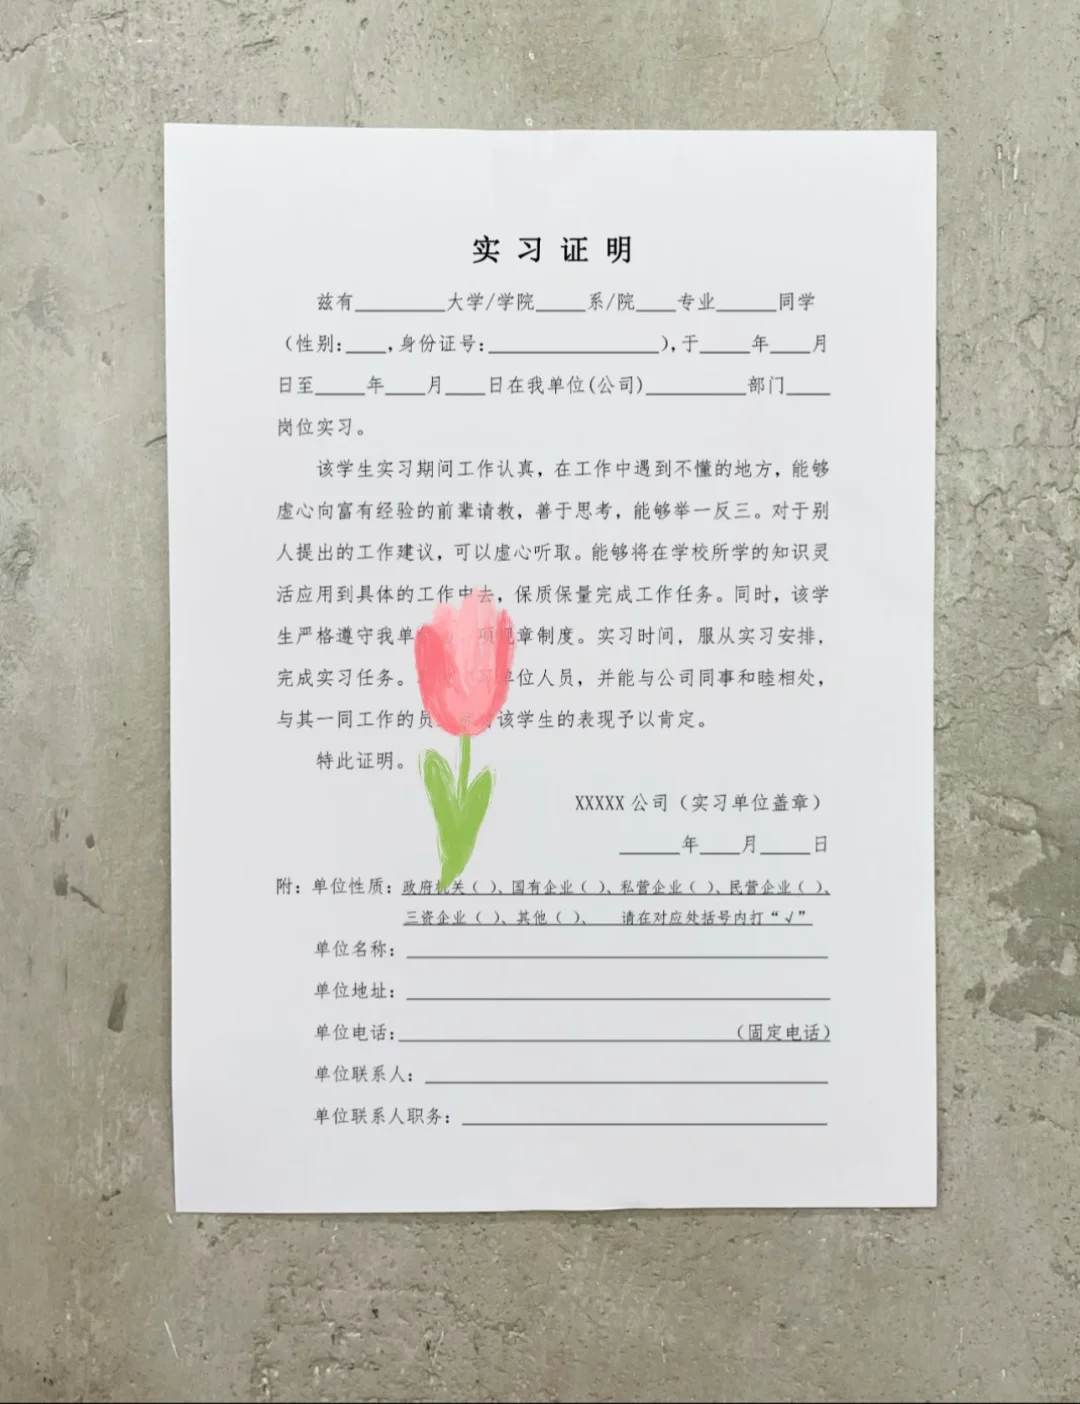 实习证明
兹有________大学/学院_____系/院____专业______同学
（性别:____,身份证号:_________________),于_____年____月
日至_____年____月____日在我单位(公司)__________部门____
岗位实习。
该学生实习期间工作认真，在工作中遇到不懂的地方，能够
虚心向富有经验的前辈请教，善于思考，能够举一反三。对于别
人提出的工作建议，可以虚心听取。能够将在学校所学的知识灵
活应用到具体的工作中去，保质保量完成工作任务。同时，该学
生严格遵守我单 项规章制度。实习时间，服从实习安排，
完成实习任务。 单位人员，并能与公司同事和睦相处，
与其一同工作的员 该学生的表现予以肯定。
特此证明。
XXXXX 公司（实习单位盖章）
______年____月_____日
附：单位性质：政府机关（ ）、国有企业（ ）、私营企业（ ）、民营企业（ ）、
三资企业（ ）、其他（ ）、 请在对应处括号内打“√”
单位名称：
单位地址：
单位电话: （固定电话）
单位联系人：
单位联系人职务：